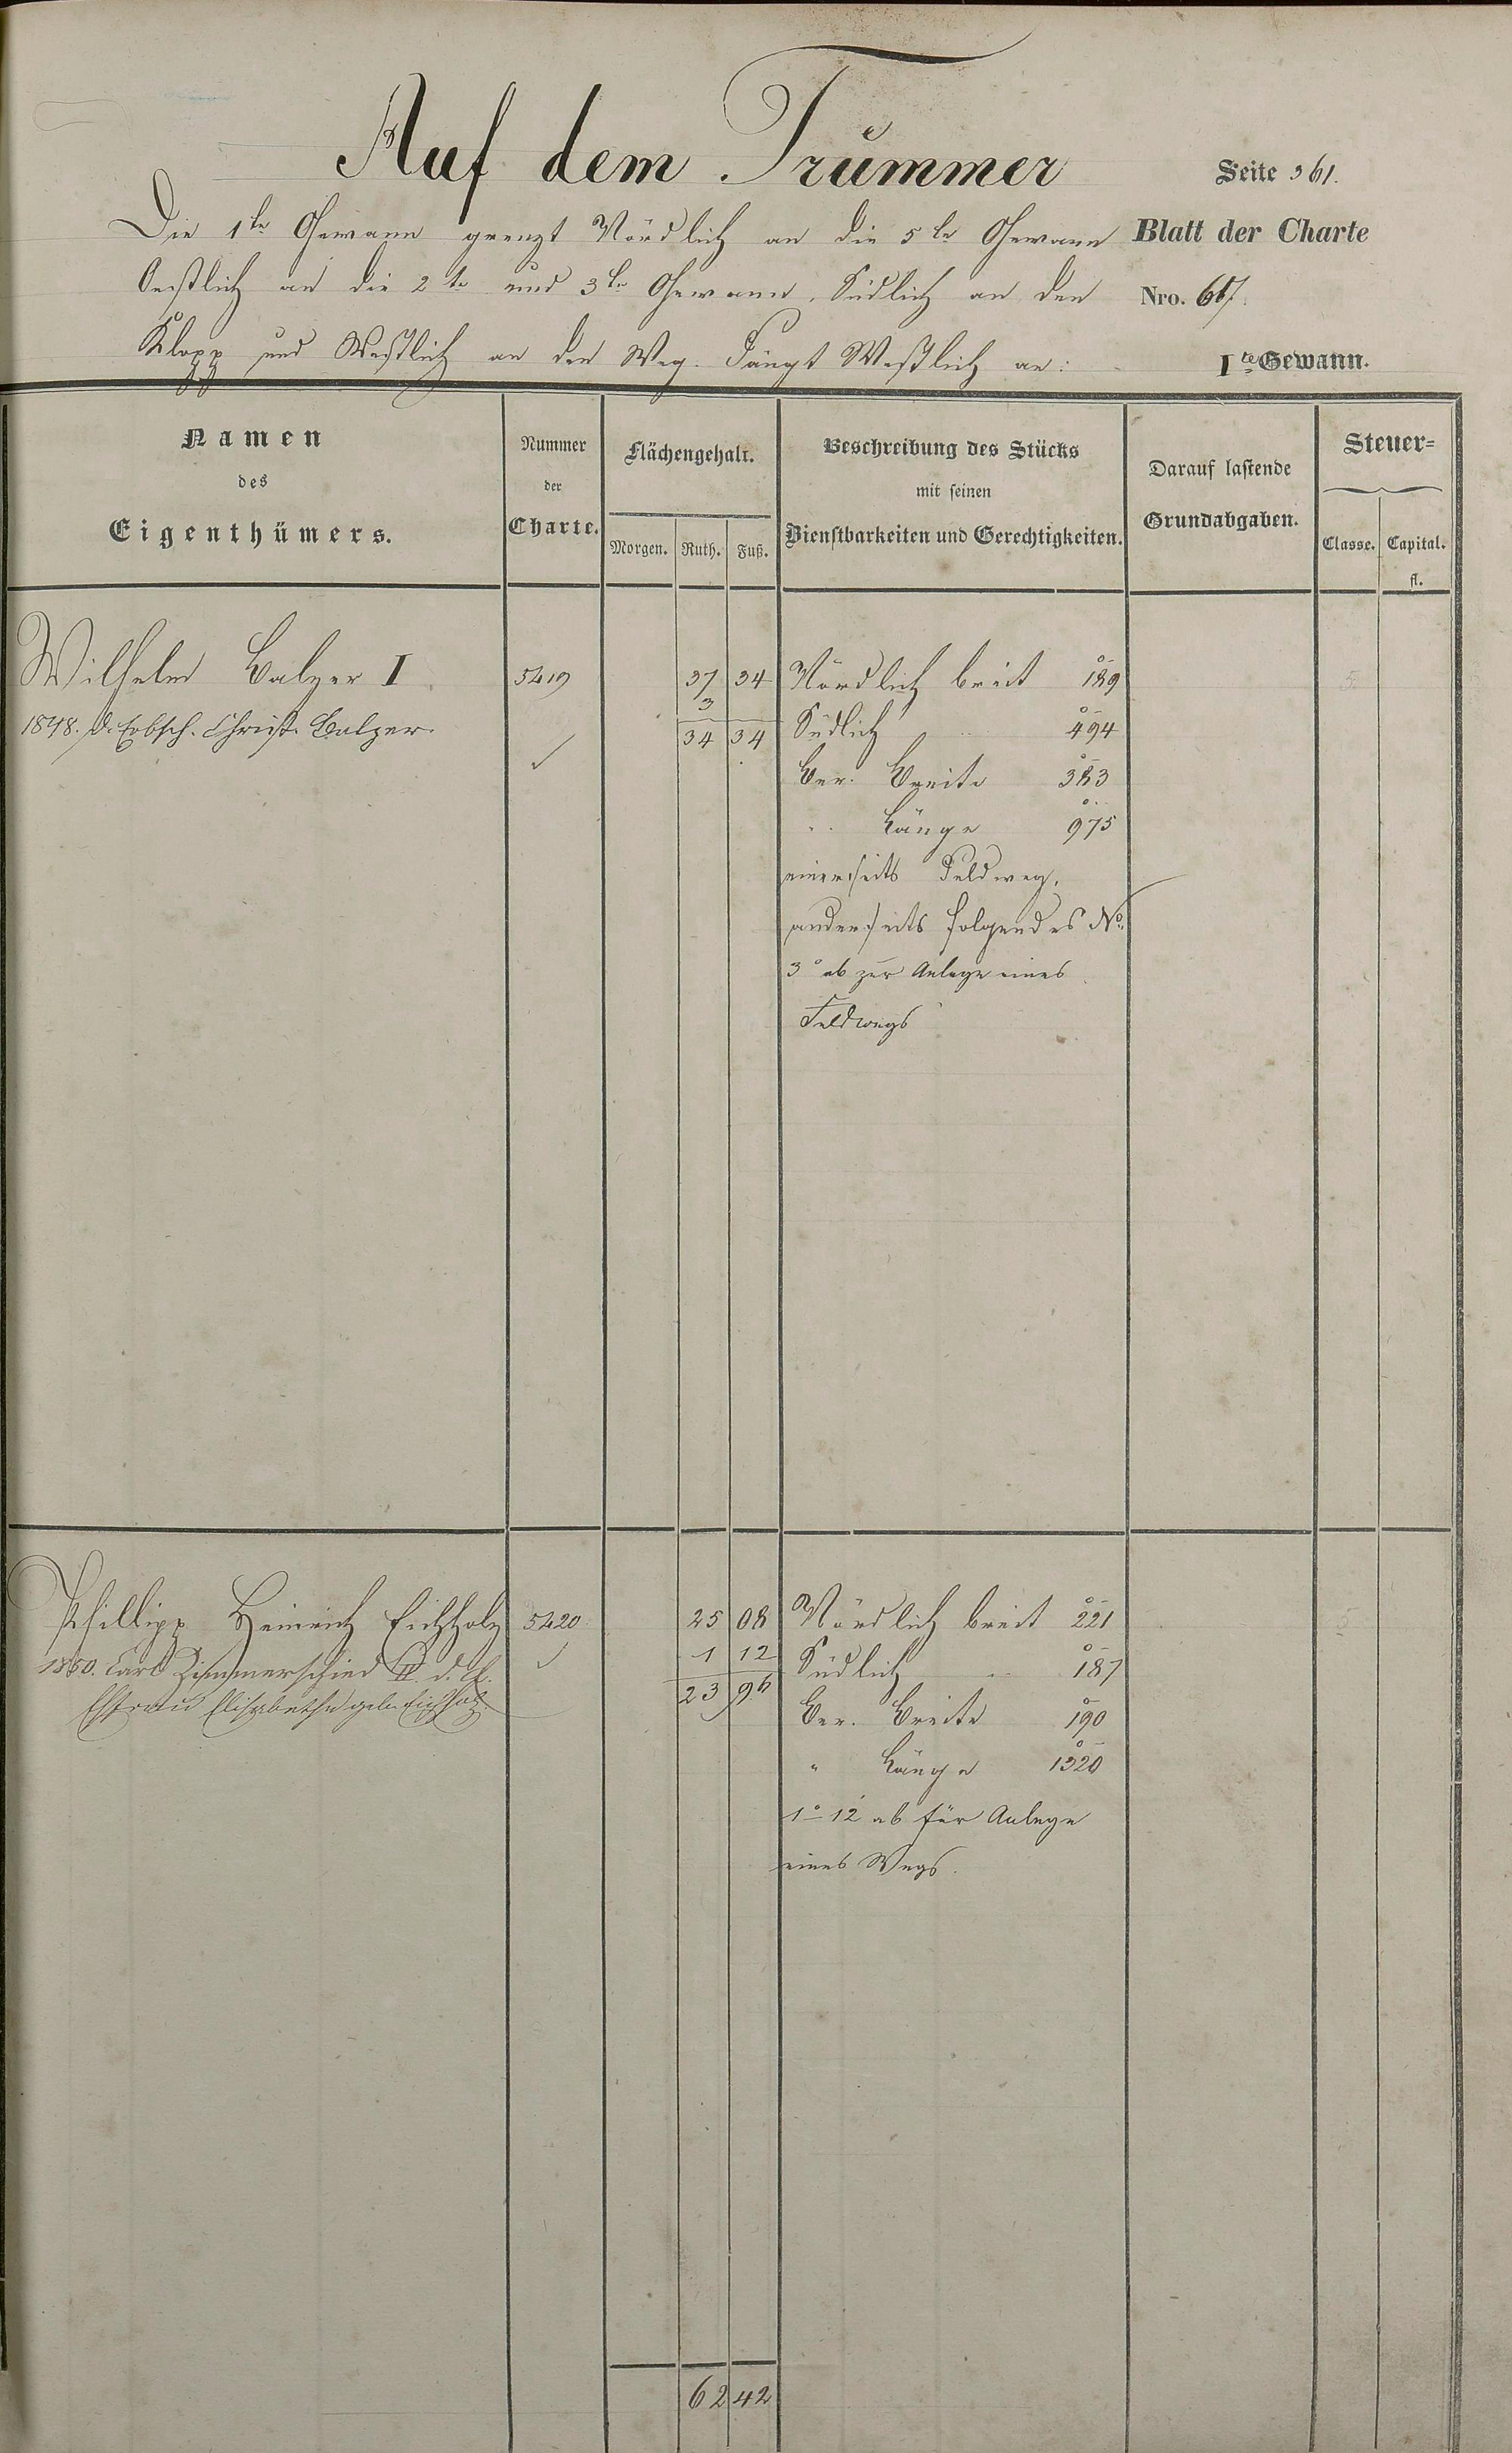 Auf dem Trümmer
Seite 361.
Die 1te Gewann grenzt Nördlich an die 5te Gewann
Blatt der Charte
Oestlich an die 2te und 3te Gewann, Südlich an den
Nro. 67.
Klopp und Westlich an den Weg. Fängt Westlich an:
Ite Gewann.
Namen
des
Eigenthümers.
Nummer
der
Charte.
Flächengehalt.
Morgen. Ruth. Fuß.
Beschreibung des Stücks
mit seinen
Dienstbarkeiten und Gerechtigkeiten.
Darauf lastende
Grundabgaben.
Steuer=
Classe. Capital.
fl.
Wilhelm Balzer I 5419 37 34 Nördlich breit 189 5
3
1848. d. Erbsch. Christ. Balzer. 34 34 Südlich " 494
Ver. Breite 383
" Länge 975
einerseits Feldweg,
anderseits folgendes No.
3° ab zur Anlage eines
Feldwegs
Phillipp Heinrich Eichholz 5420 25 08 Nördlich breit 221 5
1860. Carl Zimmerschied II. d. 1 12 Südlich " 187
Ehefrau Elisabethe geb. Eichholz. 23 96
Ver. Breite 190
" Länge 1320
1° 12' ab für Anlage
eines Wegs.
62 42